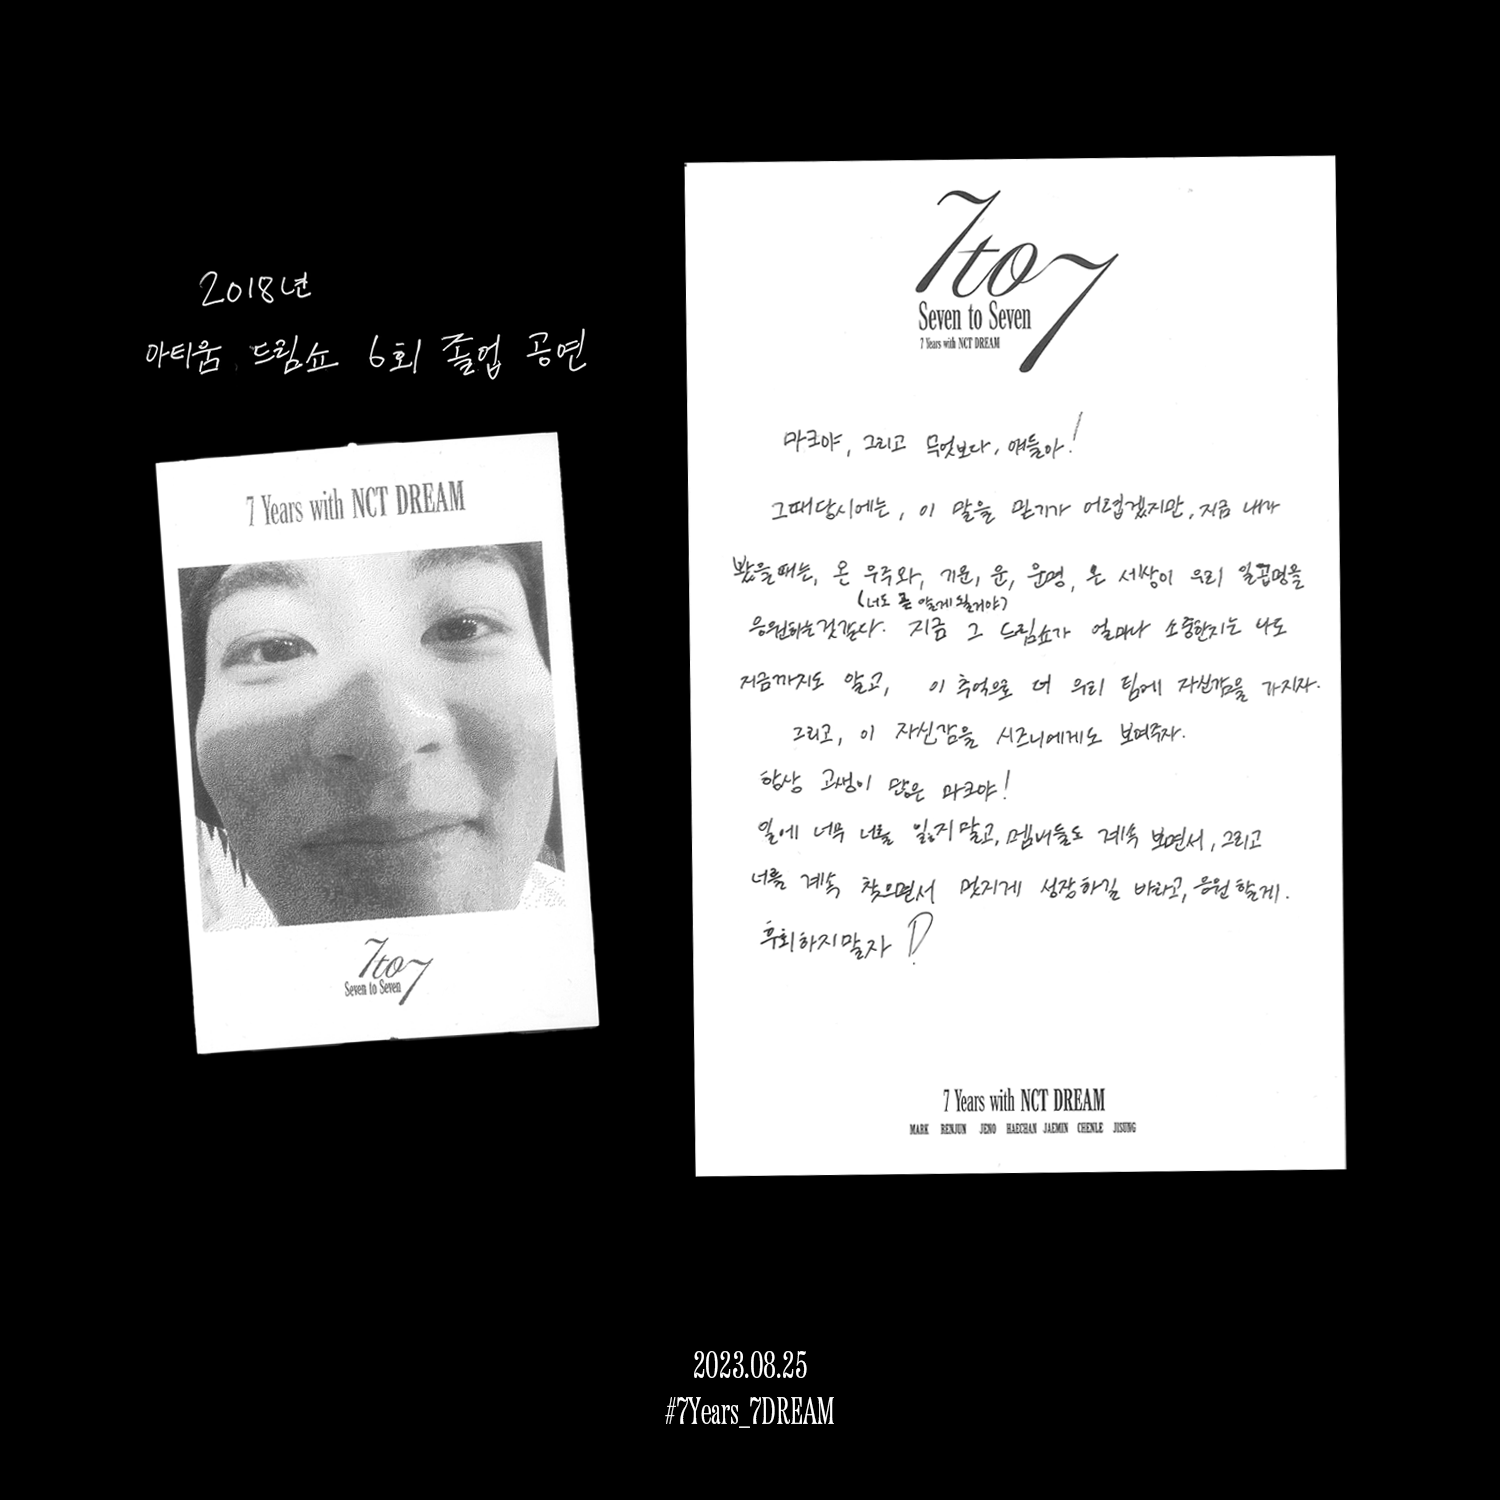 2018년
아티움 드림쇼 6회 졸업 공연
7 Years with NCT DREAM
7to7
Seven to Seven
7to7
Seven to Seven
7 Years with NCT DREAM
마크야, 그리고 무엇보다, 얘들아!
그때당시에는, 이 말을 믿기가 어렵겠지만, 지금 내가
봤을때는, 온 우주와, 기운, 운, 운명, 온 세상이 우리 일곱명을
(너도 곧 알게 될거야)
응원하는것같다. 지금 그 드림쇼가 얼마나 소중한지는 나도
지금까지도 알고, 이 추억으로 더 우리 팀에 자신감을 가지자.
그리고, 이 자신감을 시즈니에게도 보여주자.
항상 고생이 많은 마크야!
일에 너무 너를 잃지말고, 멤버들도 계속 보면서, 그리고
너를 계속 찾으면서 멋지게 성장하길 바라고, 응원할게.
후회하지말자
7 Years with NCT DREAM
MARK RENJUN JENO HAECHAN JAEMIN CHENLE JISUNG
2023.08.25
#7Years_7DREAM